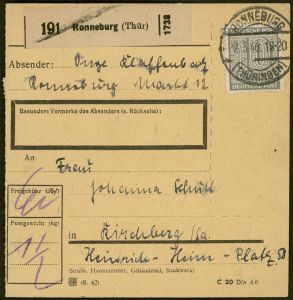 191 Ronneburg (Thür) 1738
RONNEBURG
(THÜRINGEN)
DEUTSCHE POST
Absender: Inge Klaffenbach
Ronneburg Markt 12
Besondere Vermerke des Absenders (s. Rückseite):
An
Frau
Johanna Schütt
Freigebühr
Postgewicht (kg)
in Kirchberg/Sa.
Heinrich-Heine-Platz 58
(Straße, Hausnummer, Gebäudeteil, Stockwerk)
(8. 42)
C 20 Din A6